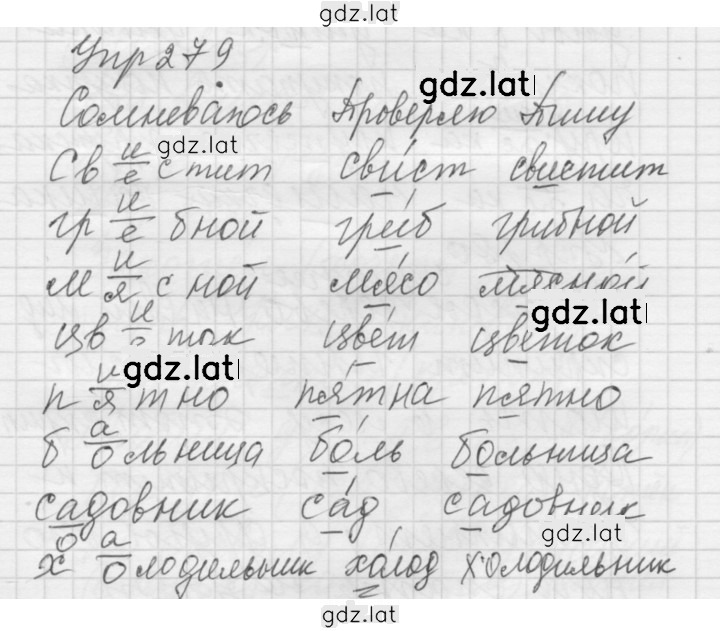 gdz.lat
Упр 279
gdz.lat
Сомневаюсь Проверяю Пишу
gdz.lat
Св и/е стит свист свистит
гр и/е бной гриб грибной
м и/я сной мясо мясной
gdz.lat
цв и/е ток цвет цветок
gdz.lat
п и/я тно пятна пятно
б а/о льница боль больница
садовник сад садовник
о
gdz.lat
х а/о лодильник холод холодильник
gdz.lat